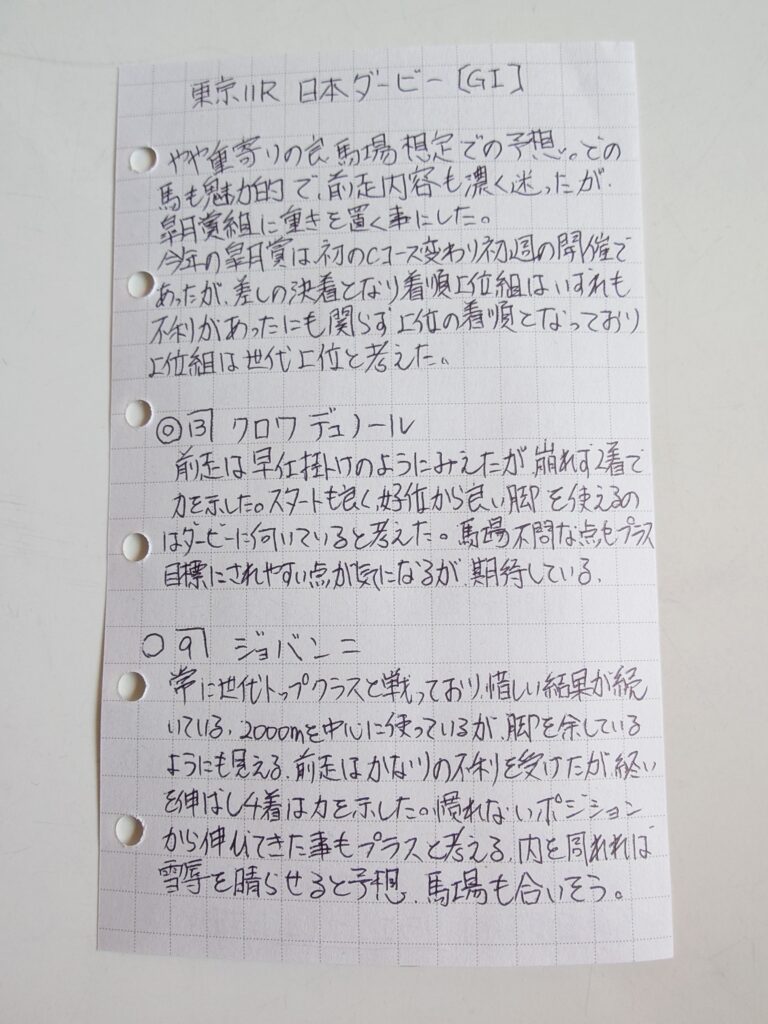 東京11R 日本ダービー[GI]
やや重寄りの良馬場想定での予想。どの
馬も魅力的で、前走内容も濃く迷ったが、
皐月賞組に重きを置く事にした。
今年の皐月賞は、初のCコース変わり初週の開催で
あったが、差しの決着となり着順上位組はいずれも
不利があったにも関らず上位の着順となっており
上位組は世代上位と考えた。
◎13 クロワデュノール
前走は早仕掛けのようにみえたが、崩れず2着で
力を示した。スタートも良く、好位から良い脚を使えるの
はダービーに向いていると考えた。馬場不問な点もプラス
目標にされやすい点が気になるが、期待している。
○9 ジョバンニ
常に世代トップクラスと戦っており、惜しい結果が続
いている。2000mを中心に使っているが、脚を余している
ようにも見える。前走はかなりの不利を受けたが、終い
を伸ばし4着は力を示した。慣れないポジション
から伸びてきた事もプラスと考える。内を周れれば
雪辱を晴らせると予想。馬場も合いそう。